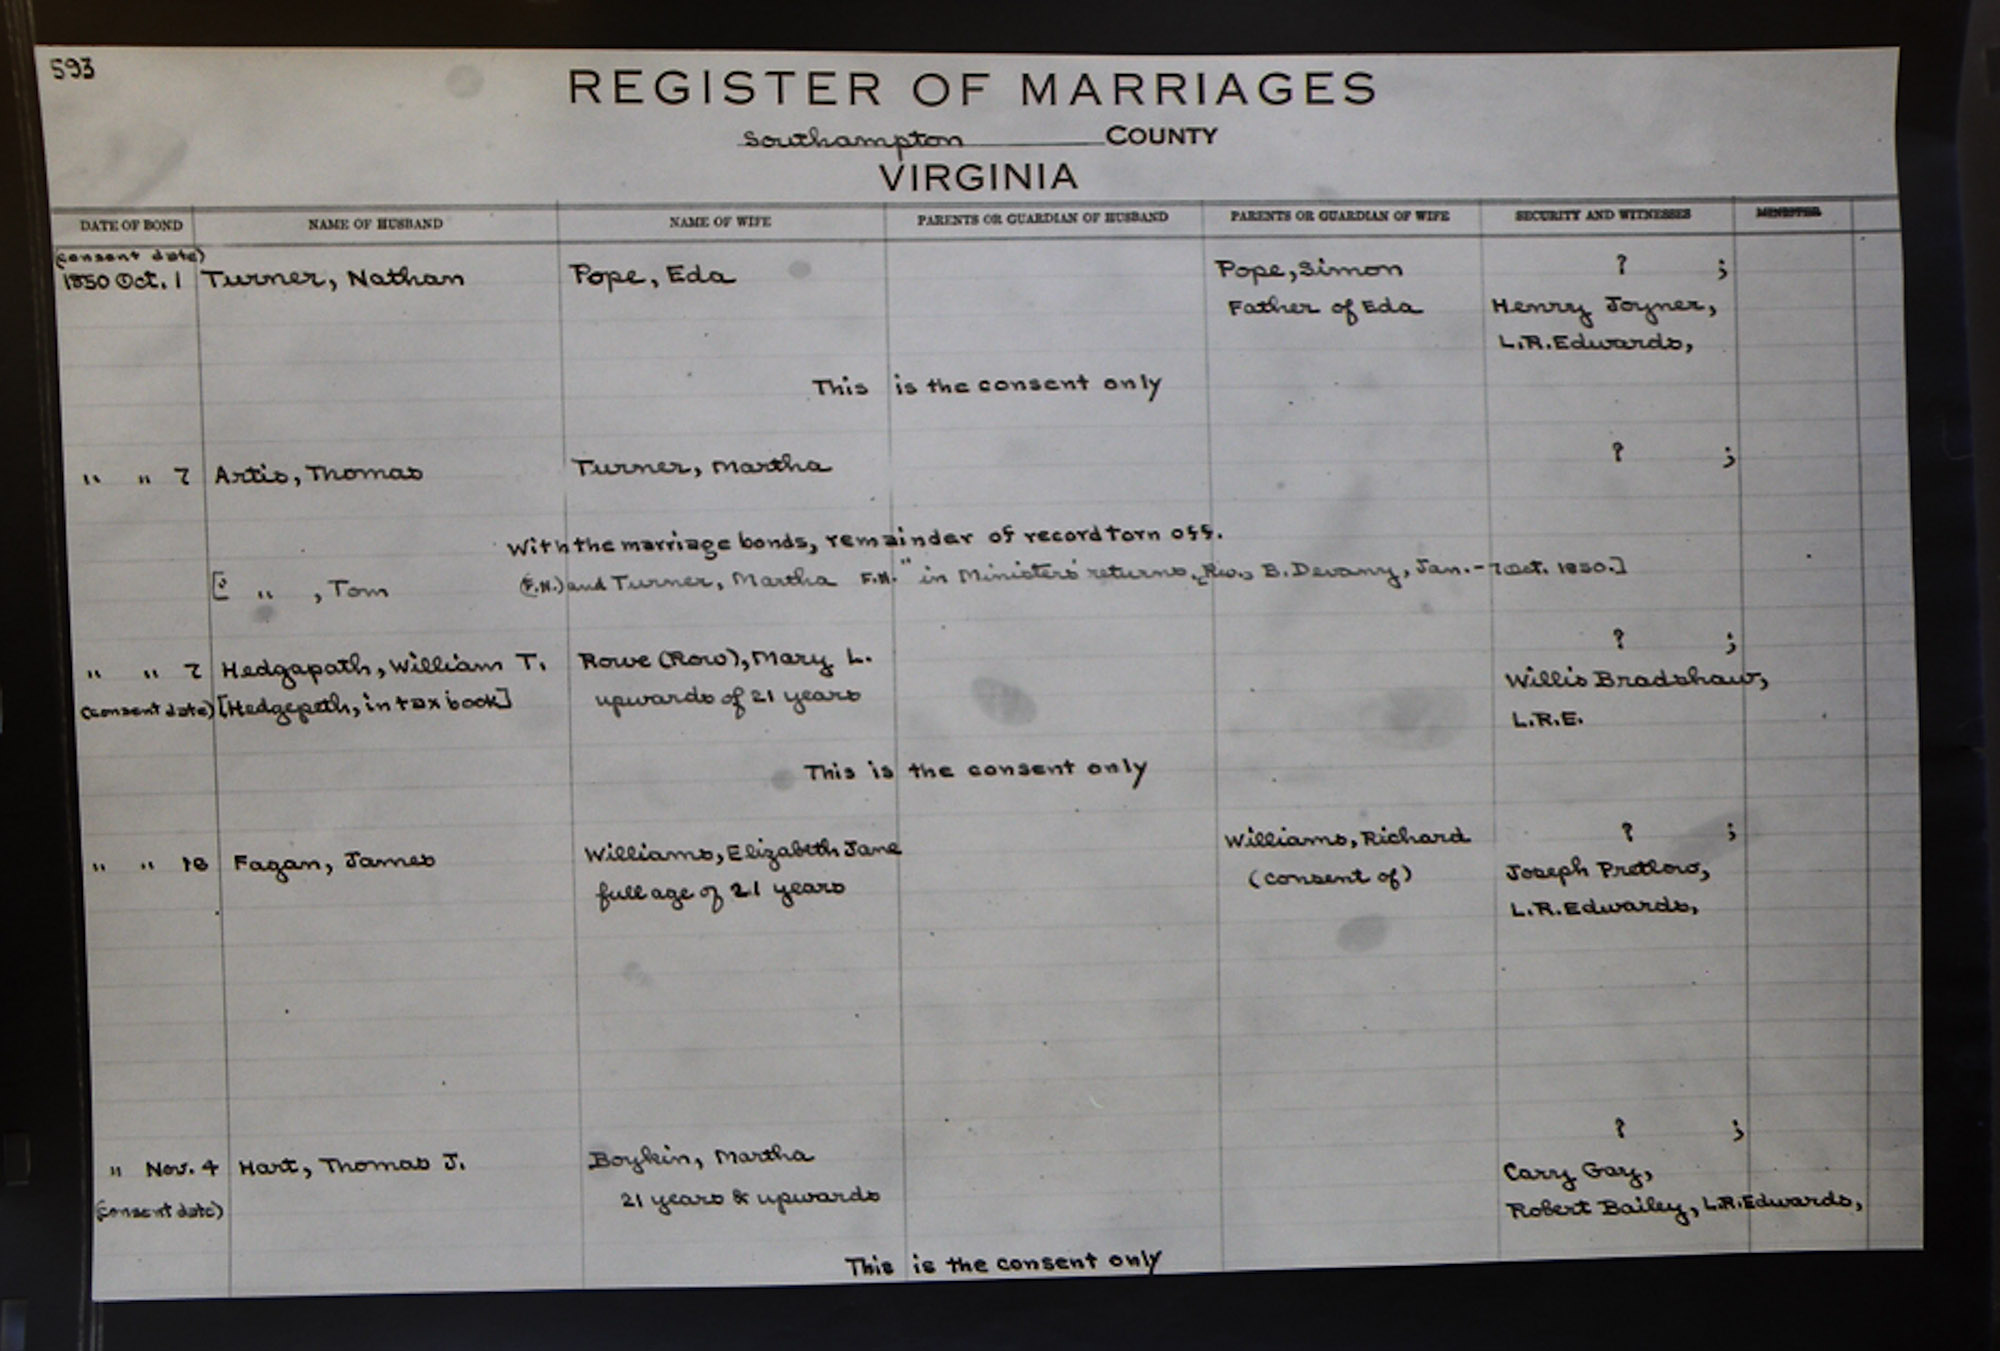 593
REGISTER OF MARRIAGES
Southampton COUNTY
VIRGINIA
DATE OF BOND NAME OF HUSBAND NAME OF WIFE PARENTS OR GUARDIAN OF HUSBAND PARENTS OR GUARDIAN OF WIFE SECURITY AND WITNESSES MINISTER
(consent date)
1850 Oct. 1 Turner, Nathan Pope, Eda Pope, Simon ? ;
Father of Eda Henry Joyner,
L.R.Edwards,
This is the consent only
" " 7 Artis, Thomas Turner, Martha ? ;
With the marriage bonds, remainder of record torn off.
[: " , Tom (F.N.) and Turner, Martha F.N." in Ministers' returns, Rev. B. Devany, Jan. - 7 Oct. 1850.]
" " 7 Hedgapath, William T. Rowe (Row), Mary L. ? ;
(consent date) [Hedgepeth, in tax book] upwards of 21 years Willis Bradshaw,
L.R.E.
This is the consent only
" " 18 Fagan, James Williams, Elizabeth Jane Williams, Richard ? ;
full age of 21 years (consent of) Joseph Pretlow,
L.R.Edwards,
" Nov. 4 Hart, Thomas J. Boykin, Martha ? ;
(consent date) 21 years & upwards Cary Gay,
Robert Bailey, L.R.Edwards,
This is the consent only